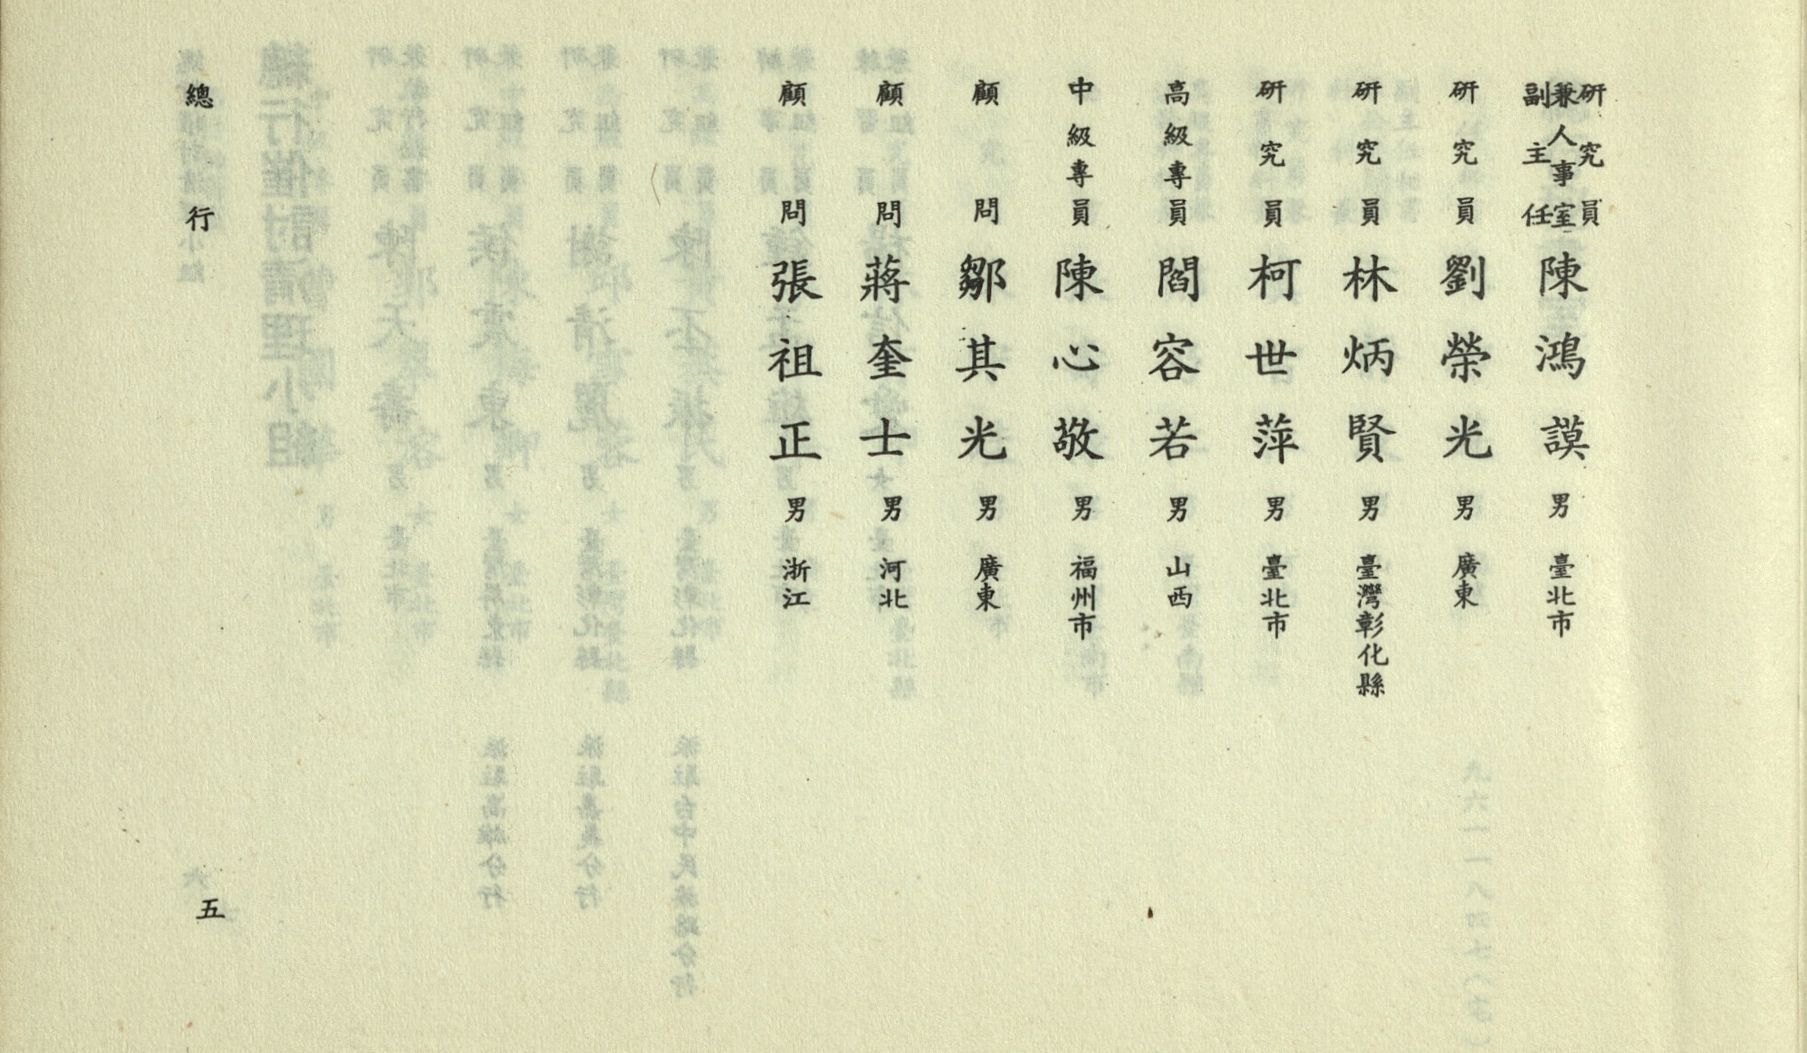 研究員兼人事室副主任 陳鴻謨 男 臺北市
研究員 劉榮光 男 廣東
研究員 林炳賢 男 臺灣彰化縣
研究員 柯世萍 男 臺北市
高級專員 閻容若 男 山西
中級專員 陳心敬 男 福州市
顧問 鄒其光 男 廣東
顧問 蔣奎士 男 河北
顧問 張祖正 男 浙江
總行
五